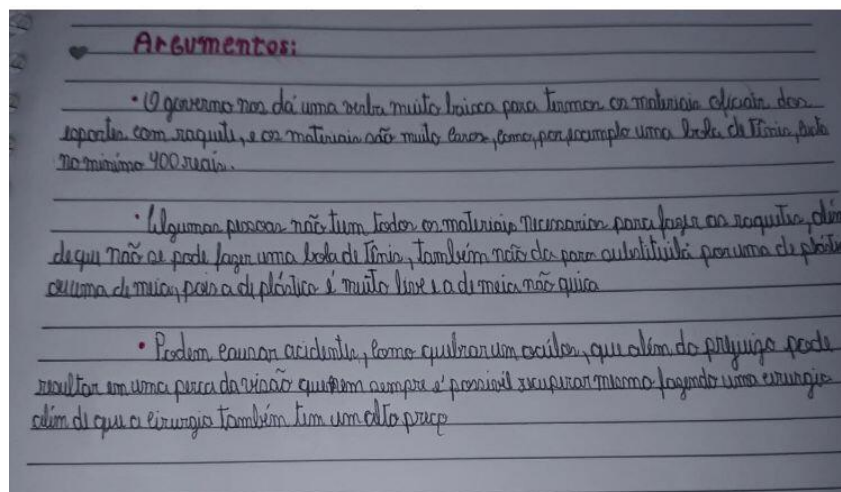 Argumentos:
• O governo nos dá uma verba muito baixa para termos os materiais oficiais dos
esportes com raquete, e os materiais são muito caros, como, por exemplo uma bola de Tênis, custa
no minimo 400 reais.
• Algumas pessoas não tem todos os materiais necessarios para fazer as raquetes, além
de que não se pode fazer uma bola de Tênis, também não da para substituila por uma de plásti
ou uma de meia, pois a de plástico é muito leve e a de meia não quica
• Podem causar acidentes, como quebrar um oculos, que além do prejuizo pode
resultar em uma perca da visão que nem sempre é possivel recuperar mesmo fazendo uma cirurgia
além de que a cirurgia também tem um alto preço